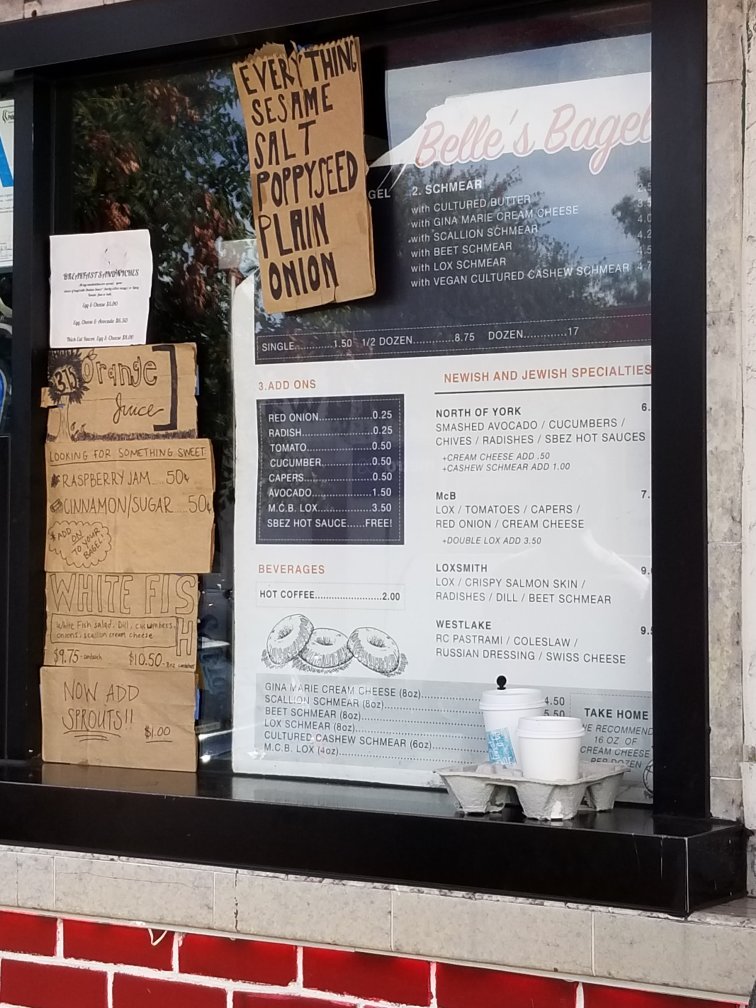 EVERYTHING
SESAME
SALT
POPPYSEED
PLAIN
ONION
Belle's Bagel
GEL
2. SCHMEAR
with CULTURED BUTTER
with GINA MARIE CREAM CHEESE
with SCALLION SCHMEAR
with BEET SCHMEAR
with LOX SCHMEAR
with VEGAN CULTURED CASHEW SCHMEAR
SINGLE..........1.50 1/2 DOZEN..........8.75 DOZEN..........17
BREAKFAST SANDWICHES
Egg & Cheese $5.00
Egg, Cheese & Avocado $6.50
Thick Cut Bacon, Egg & Cheese $8.00
Orange
Juice
LOOKING FOR SOMETHING SWEET
RASPBERRY JAM....50¢
CINNAMON/SUGAR...50¢
ADD
ON
TO YOUR
BAGEL
WHITE FISH
White Fish salad, Dill, cucumbers,
onions, scallion cream cheese
$9.75 - sandwich $10.50 - 8oz container
NOW ADD
SPROUTS!!
$1.00
3.ADD ONS
RED ONION..........0.25
RADISH..........0.25
TOMATO..........0.50
CUCUMBER..........0.50
CAPERS..........0.50
AVOCADO..........1.50
M.C.B. LOX..........3.50
SBEZ HOT SAUCE......FREE!
BEVERAGES
HOT COFFEE..........2.00
NEWISH AND JEWISH SPECIALTIES
NORTH OF YORK 6.
SMASHED AVOCADO / CUCUMBERS /
CHIVES / RADISHES / SBEZ HOT SAUCES
+CREAM CHEESE ADD .50
+CASHEW SCHMEAR ADD 1.00
McB 7.
LOX / TOMATOES / CAPERS /
RED ONION / CREAM CHEESE
+DOUBLE LOX ADD 3.50
LOXSMITH 9.
LOX / CRISPY SALMON SKIN /
RADISHES / DILL / BEET SCHMEAR
WESTLAKE 9.
RC PASTRAMI / COLESLAW /
RUSSIAN DRESSING / SWISS CHEESE
GINA MARIE CREAM CHEESE (8oz)..........4.50
SCALLION SCHMEAR (8oz)..........5.50
BEET SCHMEAR (8oz)
LOX SCHMEAR (8oz)
CULTURED CASHEW SCHMEAR (6oz)
M.C.B. LOX (4oz)
TAKE HOME
RECOMMEND
16 OZ OF
CREAM CHEESE
PER DOZEN